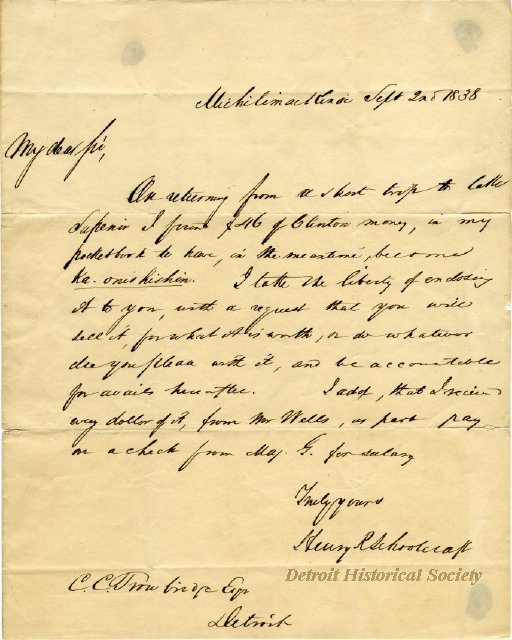 Michilimackinac Sept 2nd 1838
My dear Sir,
On returning from a short trip to lake
Superior I found $46 of Clinton money, in my
pocketbook to have, in the meantime, become
ka-onishishin. I take the liberty of enclosing
it to you, with a request that you will
sell it, for what it is worth, or do whatever
else you please with it, and be accountable
for avails hereafter. I add, that I received
every dollar of it, from Mr Wells, as part pay
on a check from Maj. G. for salary
Truly yours
Henry R Schoolcraft
C. C. Trowbridge Esqr
Detroit
Detroit Historical Society